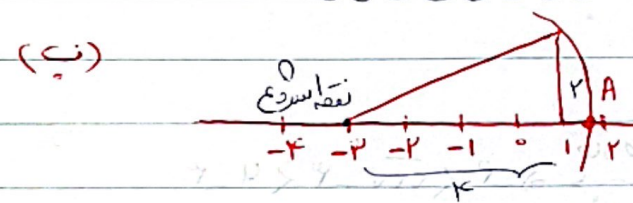 (پ)
نقطه شروع
۲ A
-۴ -۳ -۲ -۱ ۰ ۱ ۲
۴